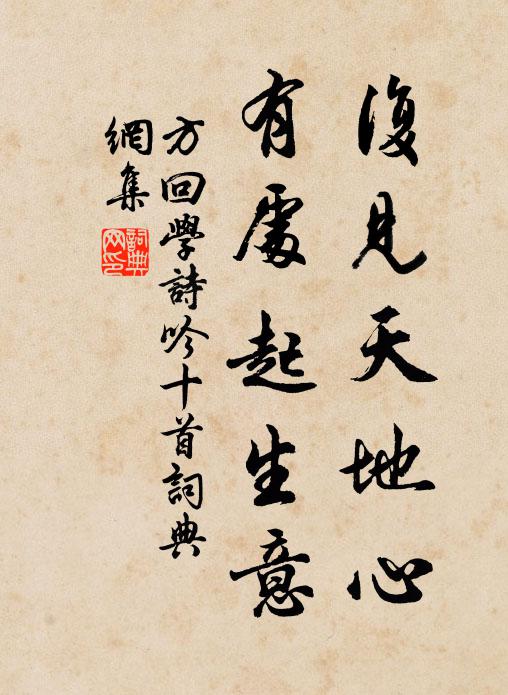 復見天地心
有處起生意
方回學詩吟十首詞典
網集
詞典
網印